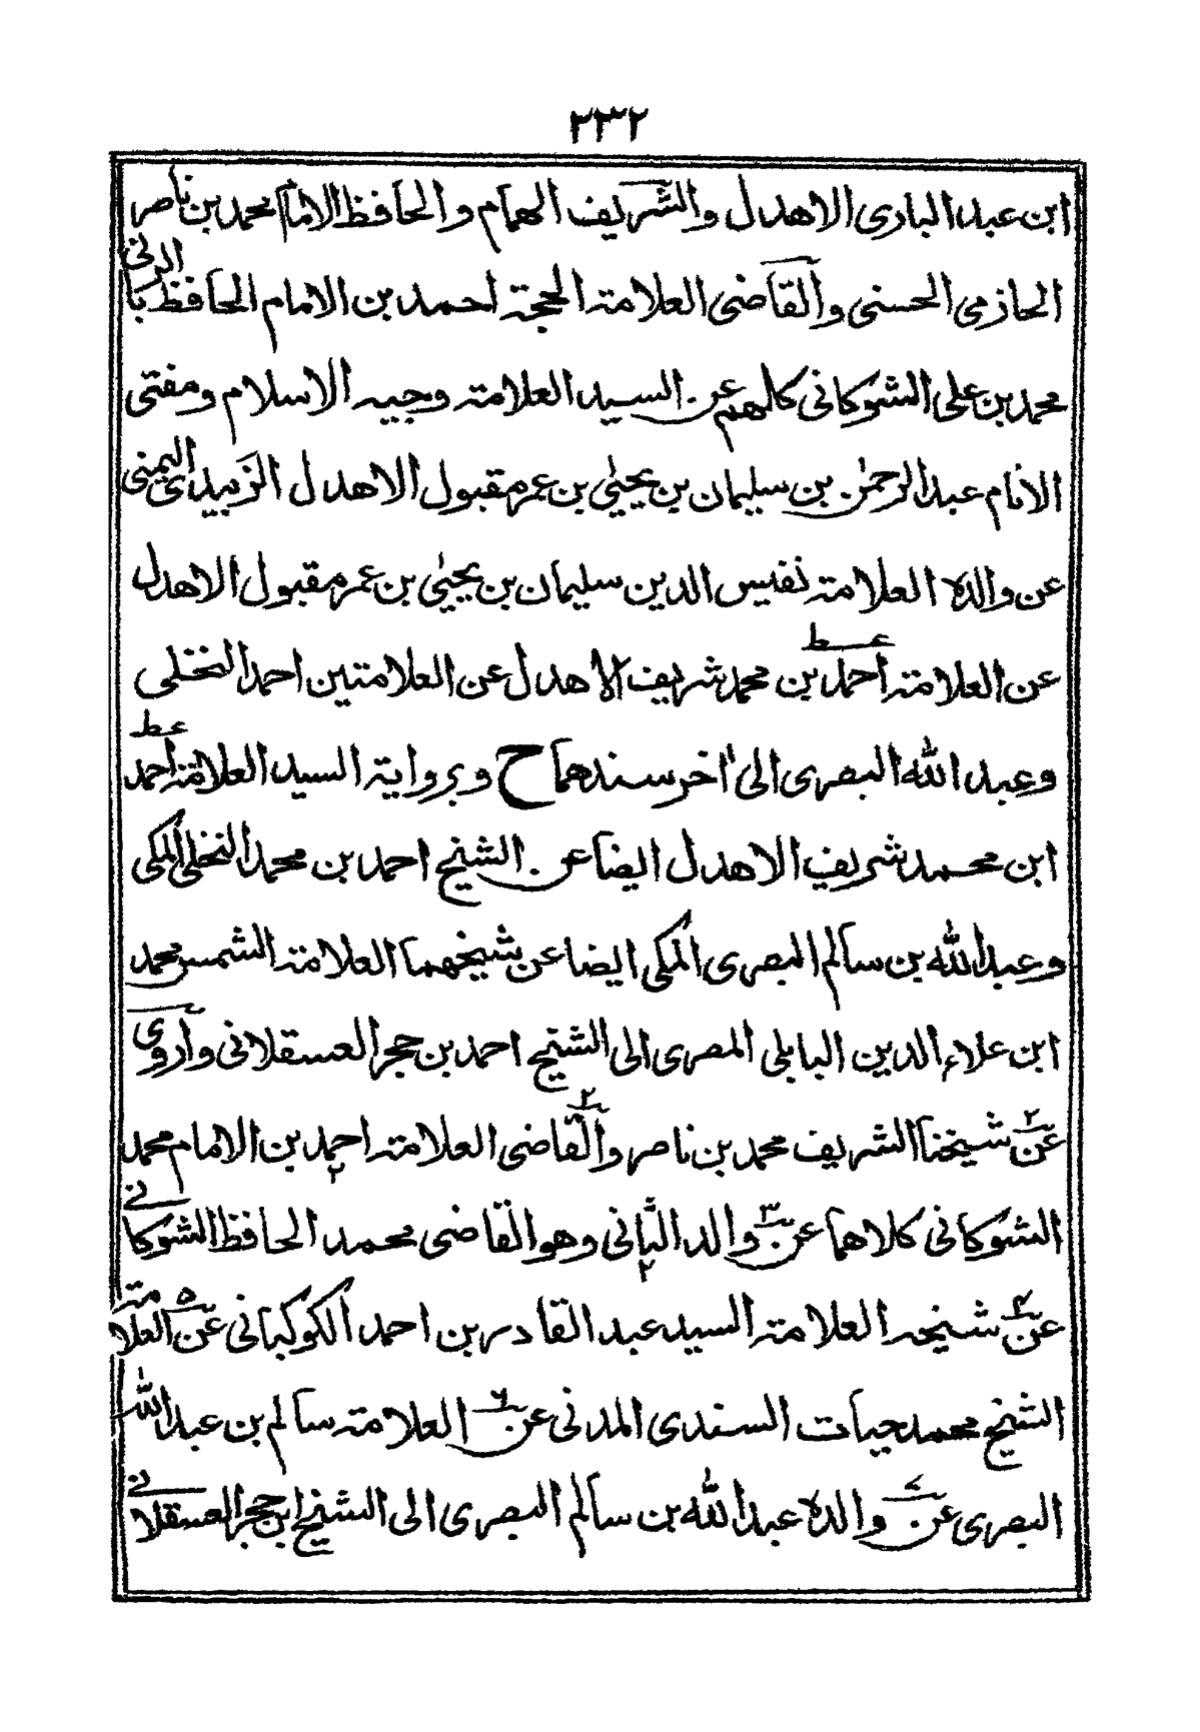 ٢٣٢
ابن عبد البارى الاهدل والشريف الهمام والحافظ الامام محمد بن ناصر
الحازمى الحسنى والقاضى العلامة الحجة احمد بن الامام الحافظ الربانى
محمد بن على الشوكانى كلهم عن السيد العلامة وجيه الاسلام ومفتى
الانام عبد الرحمٰن بن سليمان بن يحيٰي بن عمر مقبول الاهدل الزبيدى اليمنى
عن والده العلامة نفيس الدين سليمان بن يحيٰي بن عمر مقبول الاهدل
عن العلامة احمد بن محمد شريف الاهدل عن العلامتين احمد النخلى
وعبد الله البصرى الى اٰخر سندهما ح وبرواية السيد العلامة احمد
ابن محمد شريف الاهدل ايضا عن الشيخ احمد بن محمد النخلى المكى
وعبد الله بن سالم البصرى المكى ايضا عن شيخهما العلامة الشمس محمد
ابن علاء الدين البابلى المصرى الى الشيخ احمد بن حجر العسقلانى واروى
عن شيخنا الشريف محمد بن ناصر والقاضى العلامة احمد بن الامام محمد
الشوكانى كلاهما عن والد الثانى وهو القاضى محمد الحافظ الشوكانى
عن شيخه العلامة السيد عبد القادر بن احمد الكوكبانى عن العلامة
الشيخ محمد حيات السندى المدنى عن العلامة سالم بن عبد الله
البصرى عن والده عبد الله بن سالم البصرى الى الشيخ ابن حجر العسقلانى